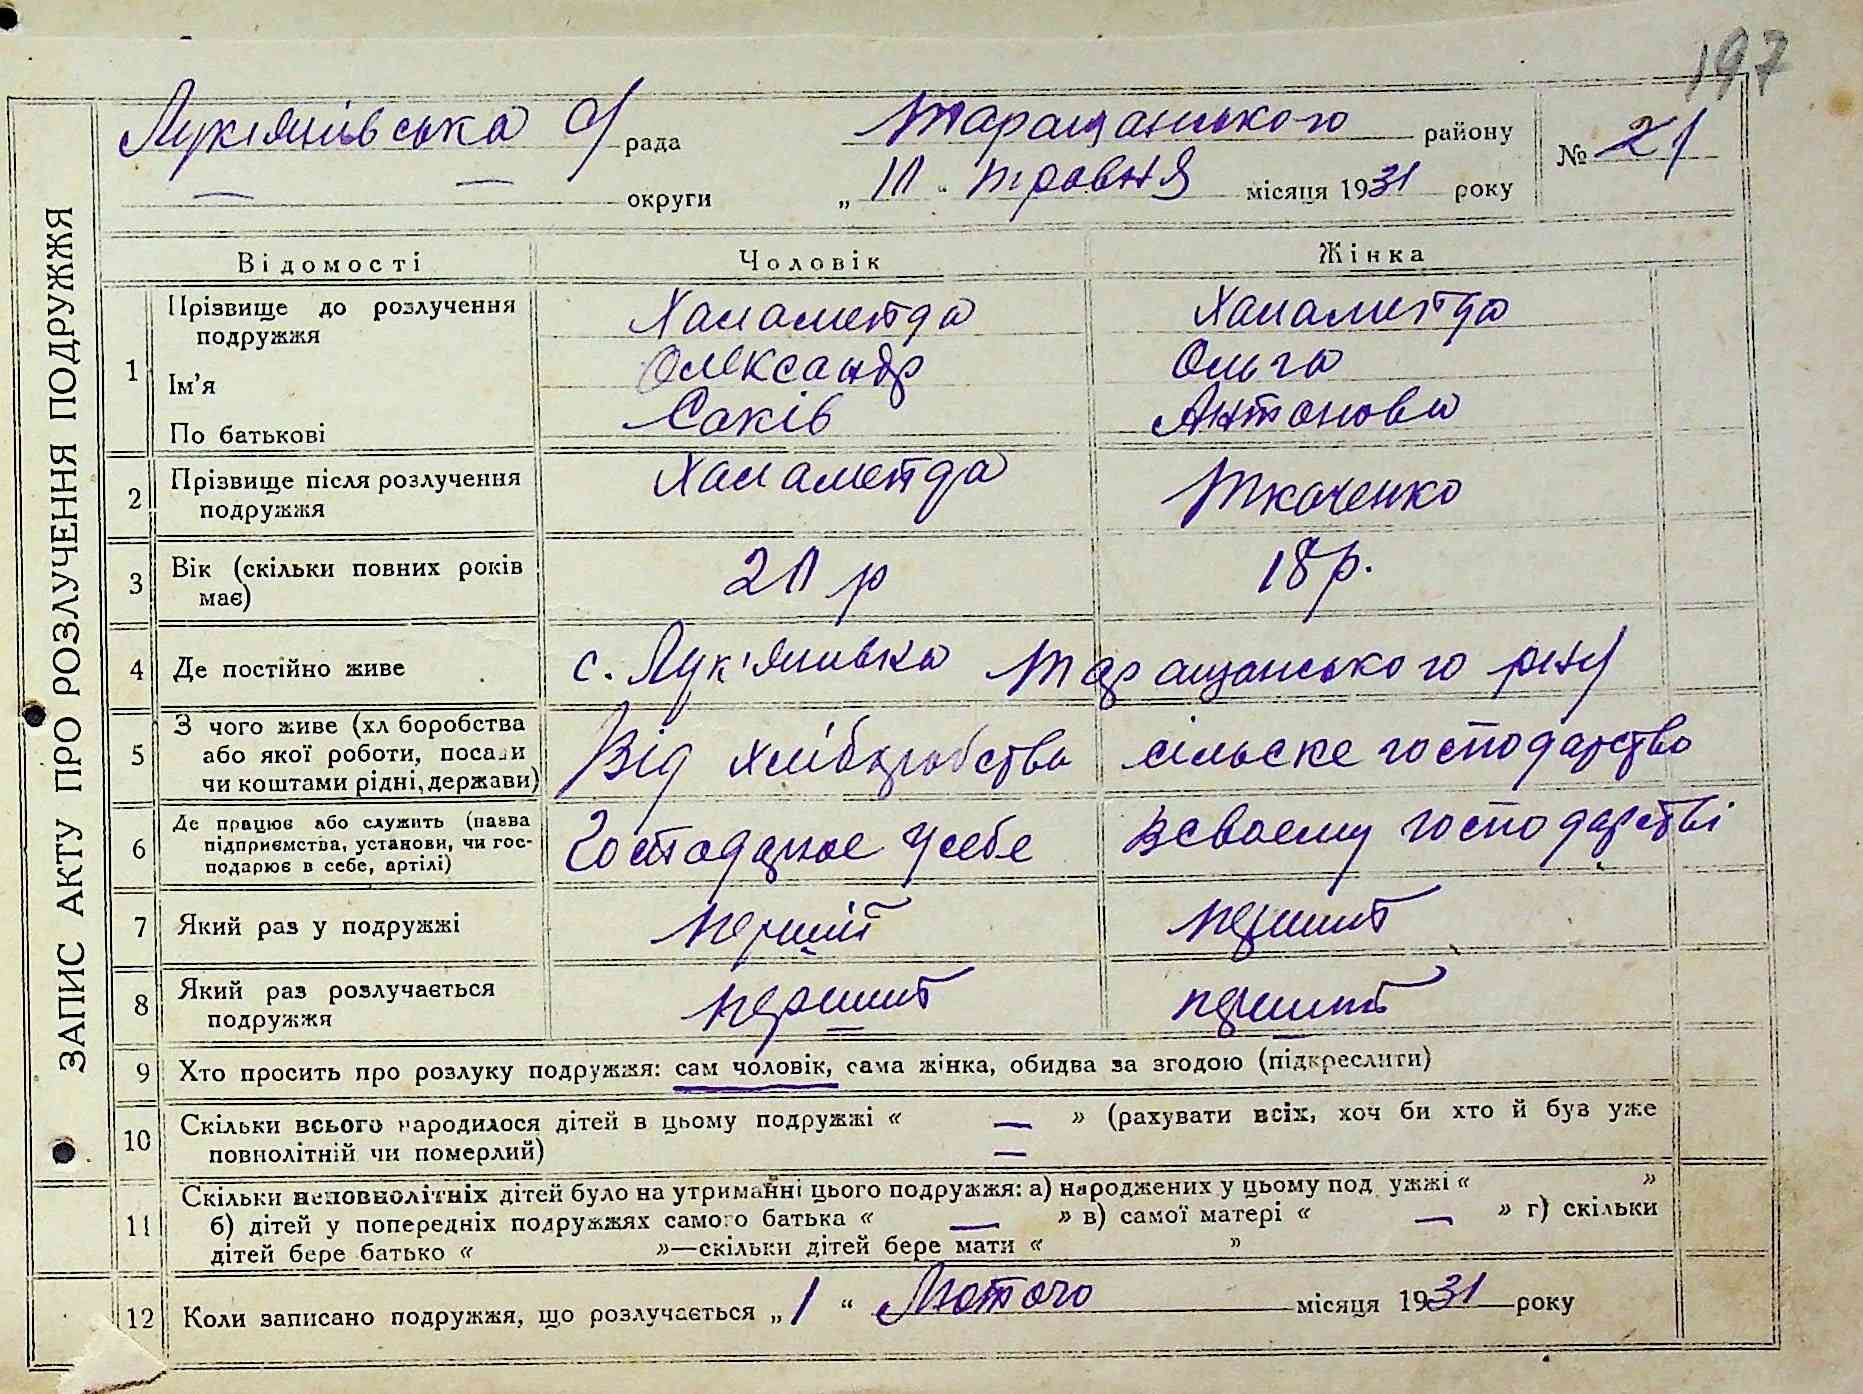 197
ЗАПИС АКТУ ПРО РОЗЛУЧЕННЯ ПОДРУЖЖЯ
Лук'янівська с/рада Таращанського району № 21
— — округи „ 11 “ травня місяця 1931 року
Відомості Чоловік Жінка
1 Прізвище до розлучення подружжя Халаменда Халаменда
Ім'я Олександр Ольга
По батькові Саків Антонова
2 Прізвище після розлучення Халаменда Ткаченко
подружжя
3 Вік (скільки повних років 21 р 18 р.
має)
4 Де постійно живе с. Лук'янивка Таращанського р-ну
5 З чого живе (хліборобства Від хліборобства сільске господарство
або якої роботи, посади
чи коштами рідні, держави)
6 Де працює або служить (назва
підприємства, установи, чи гос- Господарює у себе в своему господарстві
подарює в себе, артілі)
7 Який раз у подружжі перший перший
8 Який раз розлучається перший перший
подружжя
9 Хто просить про розлуку подружжя: сам чоловік, сама жінка, обидва за згодою (підкреслити)
10 Скільки всього народилося дітей в цьому подружжі « — » (рахувати всіх, хоч би хто й був уже
повнолітній чи померлий) —
11 Скільки неповнолітніх дітей було на утриманні цього подружжя: а) народжених у цьому под ужжі « »
б) дітей у попередніх подружжях самого батька « — » в) самої матері « — » г) скільки
дітей бере батько « »—скільки дітей бере мати « »
12 Коли записано подружжя, що розлучається „ 1 “ Лютого місяця 1931 року